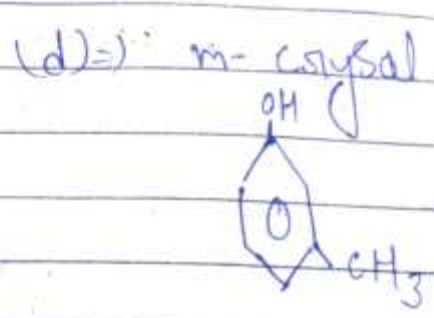 (d)=) m- corysal
OH
CH3